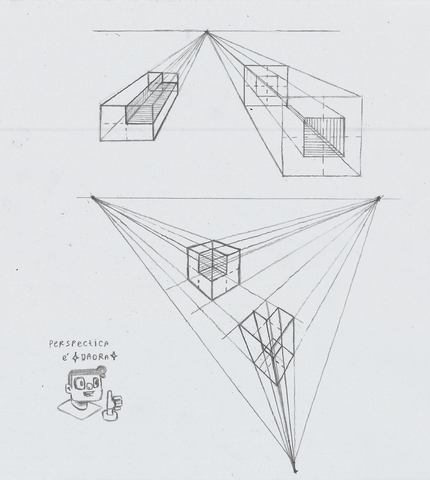 PERSPECTICA
é DAORA